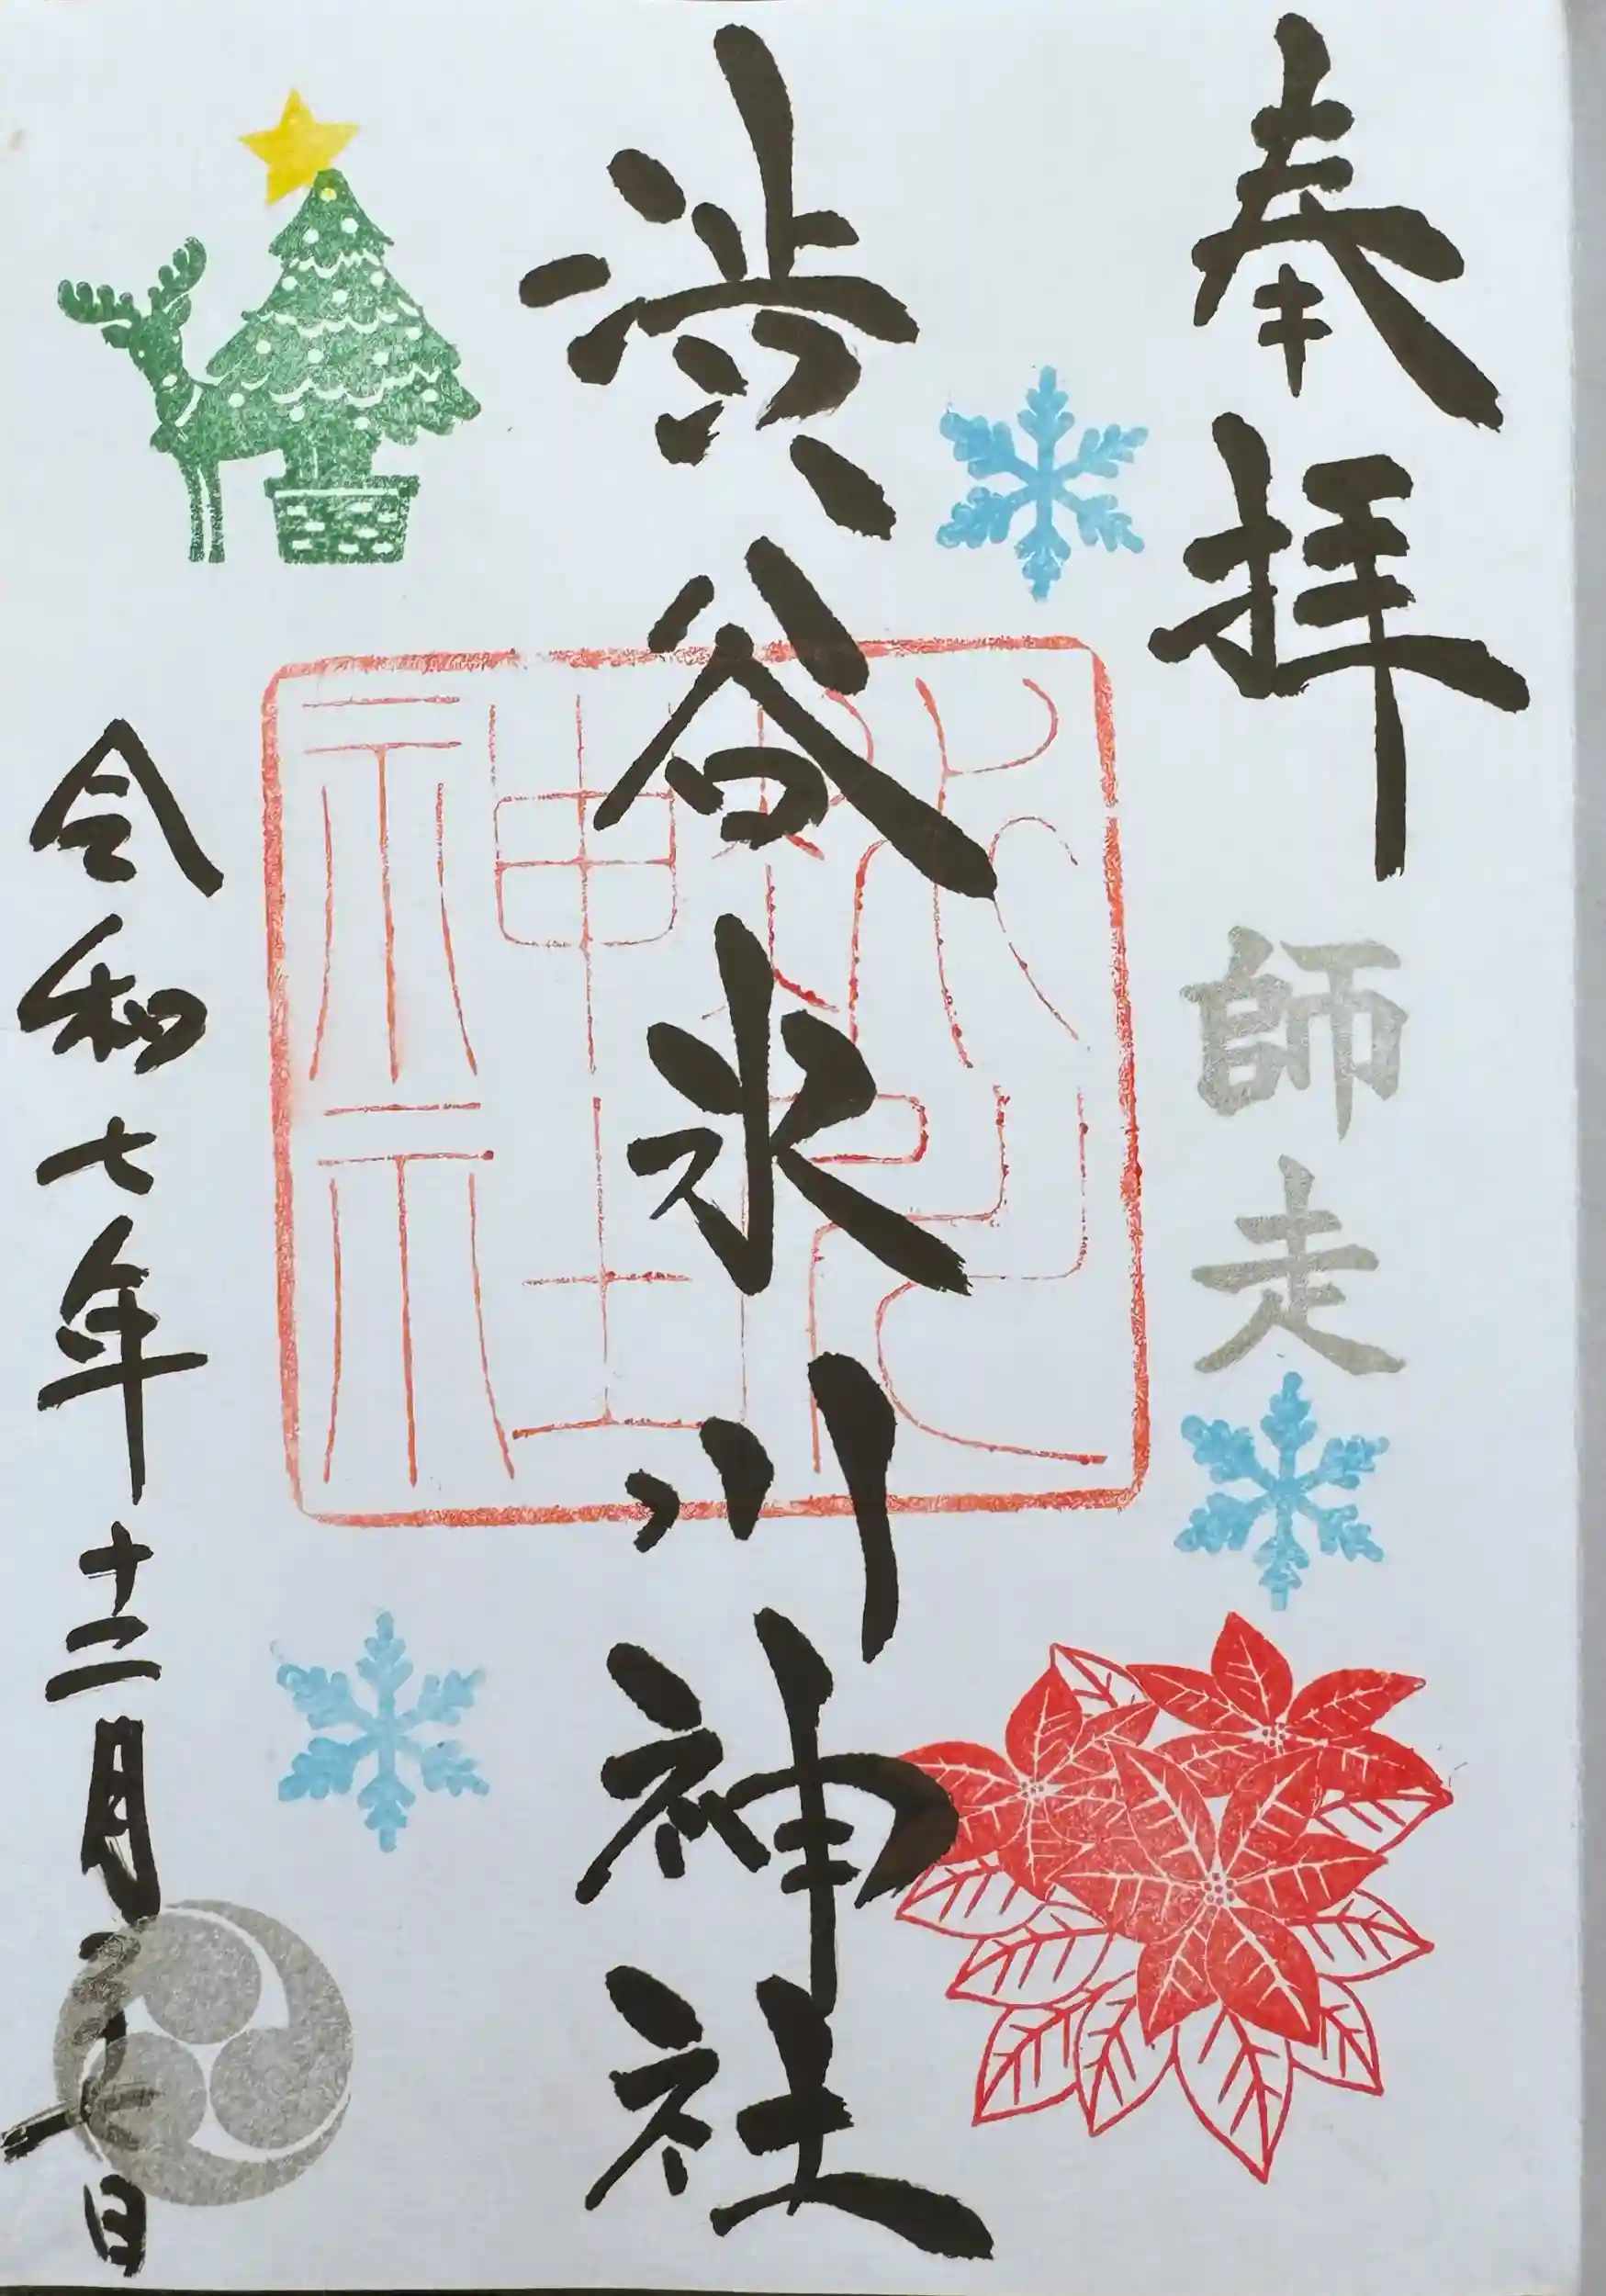 奉拝
師走
渋谷氷川神社
氷川神社
令和七年十二月二十七日